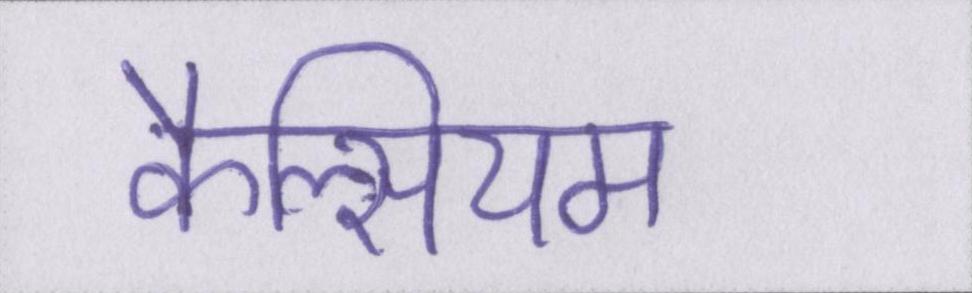 कैल्सियम